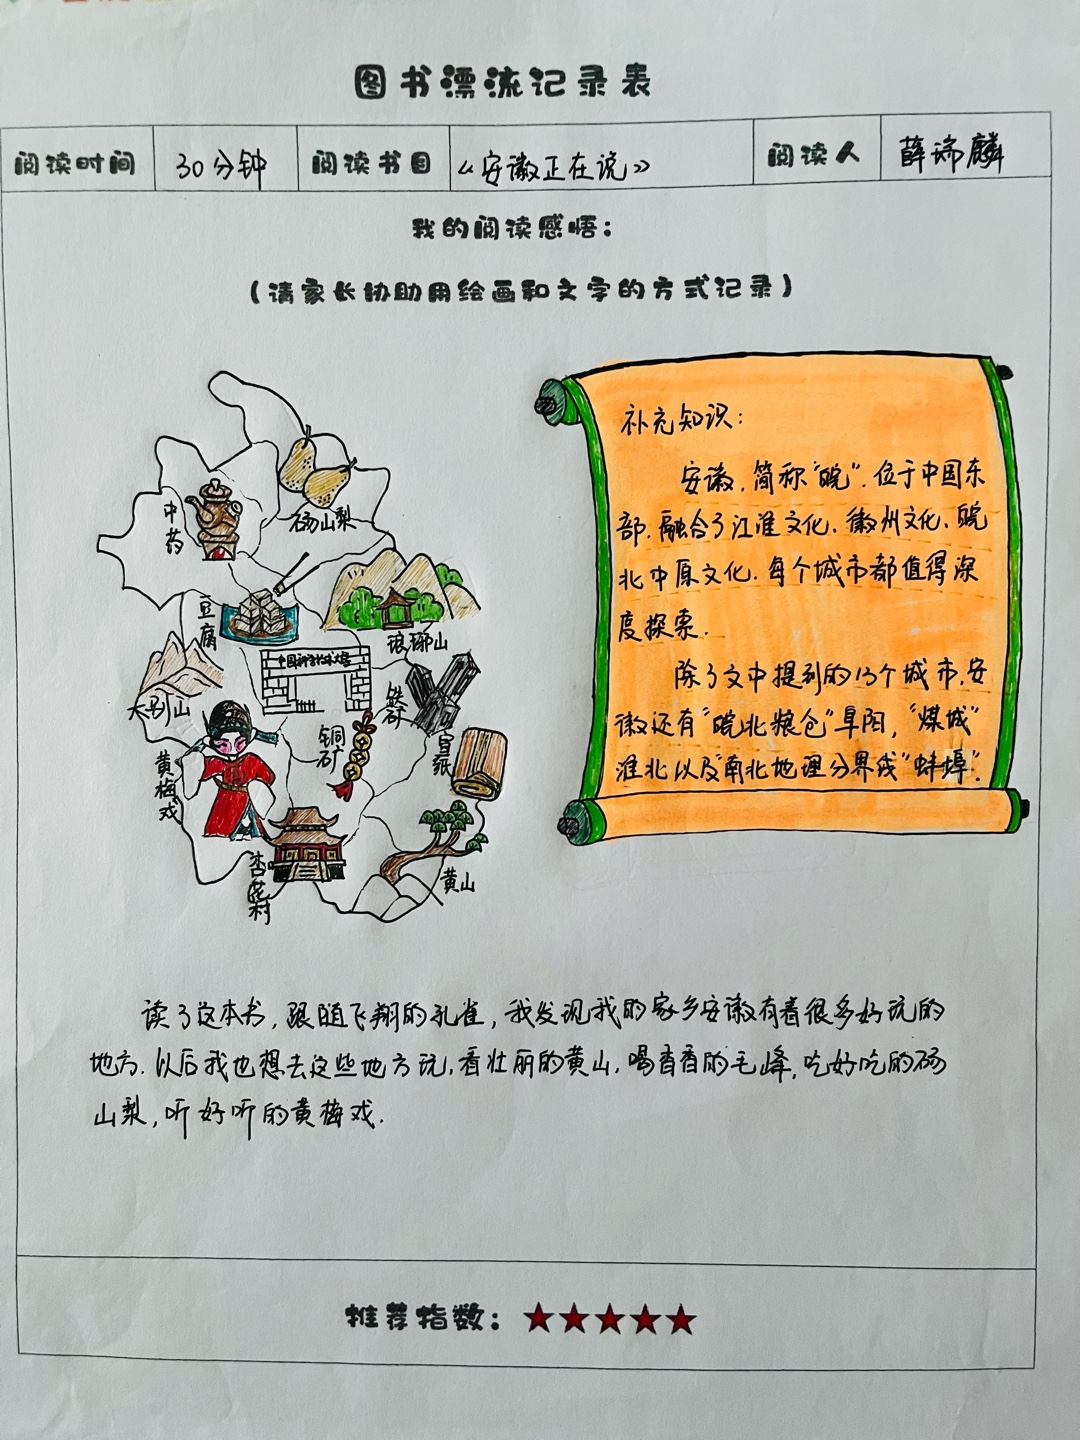 图书漂流记录表
阅读时间 30分钟 阅读书目 《安徽正在说》 阅读人 薛瑞麟
我的阅读感悟：
（请家长协助用绘画和文字的方式记录）
中药
砀山梨
豆腐
琅琊山
中国科学技术大学
大别山
铁矿
铜矿
宣纸
黄梅戏
杏花村
黄山
补充知识：
安徽，简称“皖”，位于中国东
部，融合了江淮文化、徽州文化、皖
北中原文化，每个城市都值得深
度探索．
除了文中提到的13个城市，安
徽还有“皖北粮仓”阜阳，“煤城”
淮北以及“南北地理分界线”蚌埠”．
读了这本书，跟随飞翔的孔雀，我发现我的家乡安徽有着很多好玩的
地方．以后我也想去这些地方玩，看壮丽的黄山，喝香香的毛峰，吃好吃的砀
山梨，听好听的黄梅戏．
推荐指数：★★★★★